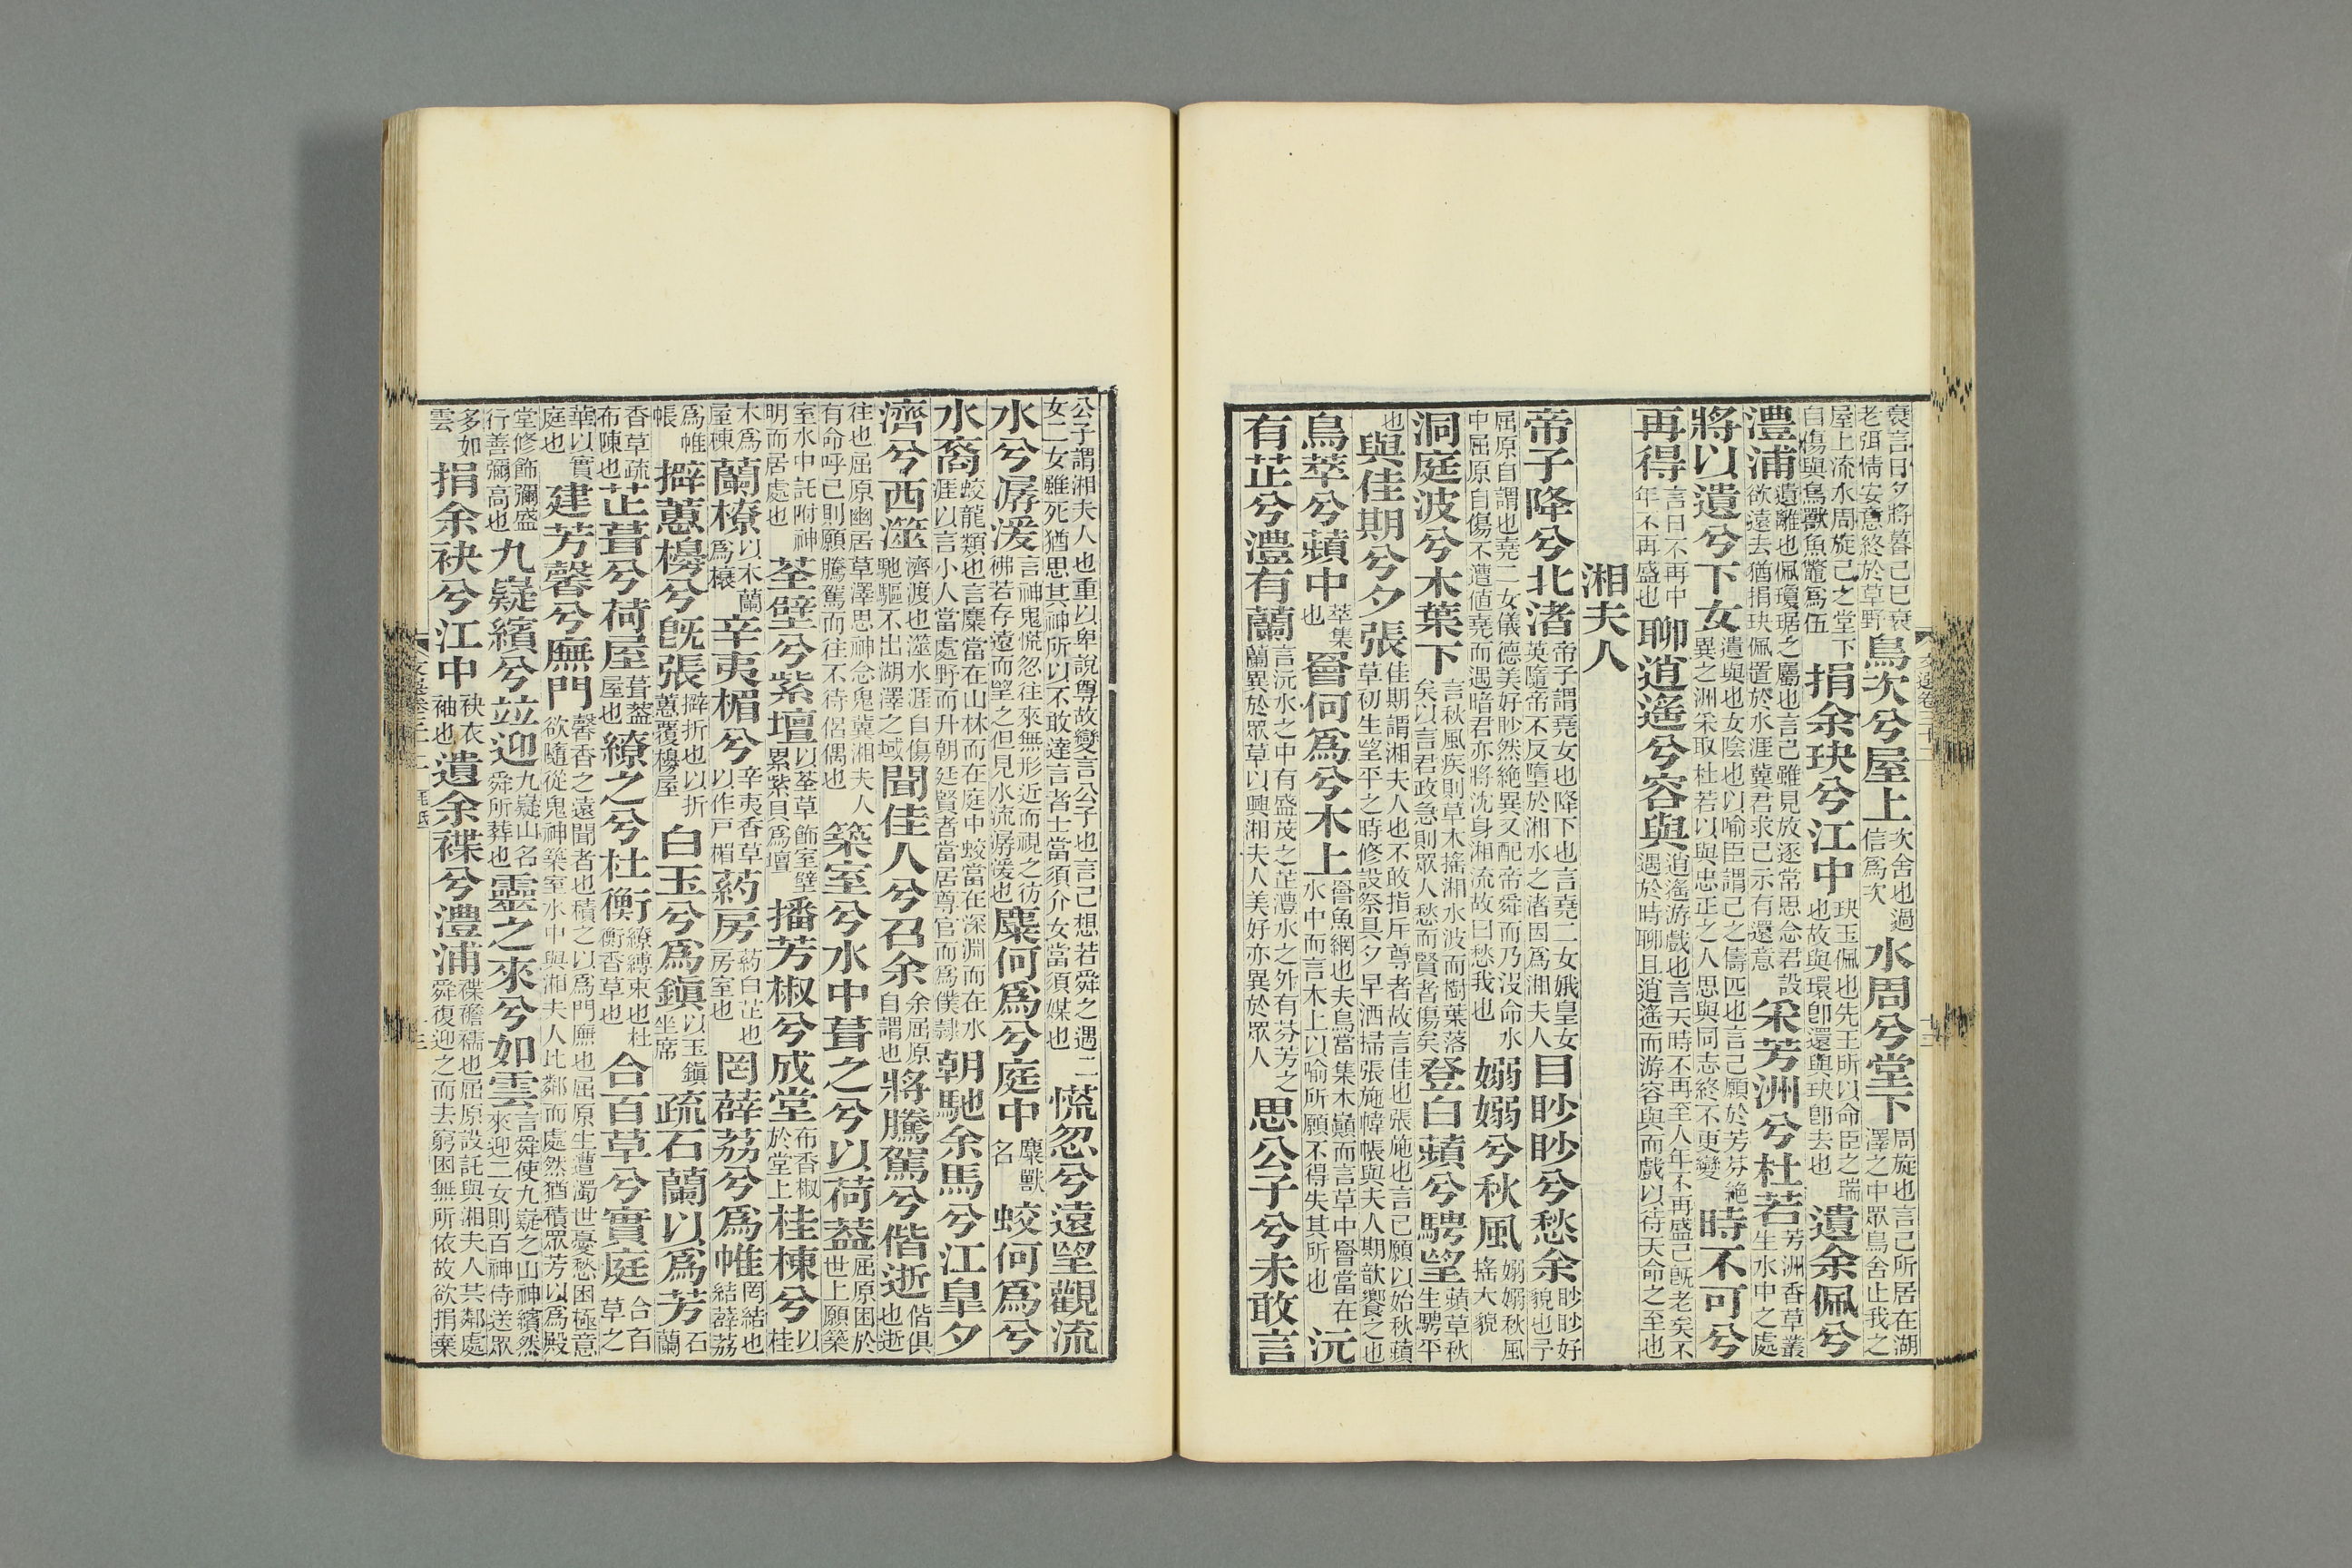 衰言日夕將暮己已衰老弭情安意終於草野鳥次兮屋上次舍也過信爲次水周兮堂下周旋也言己所居在湖澤之中眾鳥舍止我之
屋上流水周旋己之堂下自傷與鳥獸魚鼈爲伍捐余玦兮江中玦玉佩也先王所以命臣之瑞也故與環卽還與玦卽去也遺余佩兮
澧浦遺離也佩瓊琚之屬也言己雖見放逐常思念君設欲遠去猶捐玦佩置於水涯冀君求己示有還意采芳洲兮杜若芳洲香草叢生水中之處
將以遺兮下女遺與也女陰也以喻臣謂己之儔匹也言己願於芳芬絶異之洲采取杜若以與忠正之人思與同志終不更變時不可兮
再得言日不再中年不再盛也聊逍遙兮容與逍遙游戲也言天時不再至人年不再盛己旣老矣不遇於時聊且逍遙而游容與而戲以待天命之至也
湘夫人
帝子降兮北渚帝子謂堯女也降下也言堯二女娥皇女英隨帝不反墮於湘水之渚因爲湘夫人目眇眇兮愁余眇眇好貌也予
屈原自謂也堯二女儀德美好眇然絶異又配帝舜而乃沒命水中屈原自傷不遭値堯而遇暗君亦將沈身湘流故曰愁我也嫋嫋兮秋風嫋嫋秋風搖木貌
洞庭波兮木葉下言秋風疾則草木搖湘水波而樹葉落矣以言君政急則眾人愁而賢者傷矣登白蘋兮騁望蘋草秋生騁平
也與佳期兮夕張佳期謂湘夫人也不敢指斥尊者故言佳也張施也言己願以始秋蘋草初生望平之時修設祭具夕早洒掃張施幃帳與夫人期歆饗之也
鳥萃兮蘋中萃集也罾何爲兮木上罾魚網也夫鳥當集木巔而言草中罾當在水中而言木上以喻所願不得失其所也沅
有芷兮澧有蘭言沅水之中有盛茂之芷澧水之外有芬芳之蘭異於眾草以興湘夫人美好亦異於眾人思公子兮未敢言
公子謂湘夫人也重以卑說尊故變言公子也言己想若舜之遇二女二女雖死猶思其神所以不敢達言者士當須介女當須媒也慌忽兮遠望觀流
水兮潺湲言神鬼慌忽往來無形近而視之彷彿若存遠而望之但見水流潺湲也麋何爲兮庭中麋獸名蛟何爲兮
水裔蛟龍類也言麋當在山林而在庭中蛟當在深淵而在水涯以言小人當處野而升朝廷賢者當居尊官而爲僕隸朝馳余馬兮江皐夕
濟兮西澨濟渡也澨水涯自傷馳驅不出湖澤之域聞佳人兮召余余屈原自謂也將騰駕兮偕逝偕俱也逝
往也屈原幽居草澤思神念鬼冀湘夫人有命呼己則願騰駕而往不待侶偶也築室兮水中葺之兮以荷蓋屈原困於世上願築
室水中託附神明而居處也荃壁兮紫壇以荃草飾室壁累紫貝爲壇播芳椒兮成堂布香椒於堂上桂棟兮以桂
木爲屋棟蘭橑以木蘭爲榱辛夷楣兮辛夷香草以作戸楣葯房葯白芷也房室也罔薜荔兮爲帷罔結也結薜荔
爲帷帳擗蕙櫋兮旣張擗折也以折蕙覆櫋屋白玉兮爲鎮以玉鎮坐席疏石蘭以爲芳石蘭
香草疏布陳也芷葺兮荷屋葺蓋屋也繚之兮杜衡繚縛束也杜衡香草也合百草兮實庭合百草之
華以實庭也建芳馨兮廡門馨香之遠聞者也積之以爲門廡也屈原生遭濁世憂愁困極意欲隨從鬼神築室水中與湘夫人比鄰而處然猶積眾芳以爲殿
堂修飾彌盛行善彌高也九嶷繽兮竝迎九嶷山名舜所葬也靈之來兮如雲言舜使九嶷之山神繽然來迎二女則百神侍送眾
多如雲捐余袂兮江中袂衣袖也遺余褋兮澧浦褋襜襦也屈原設託與湘夫人共鄰處舜復迎之而去窮困無所依故欲捐棄